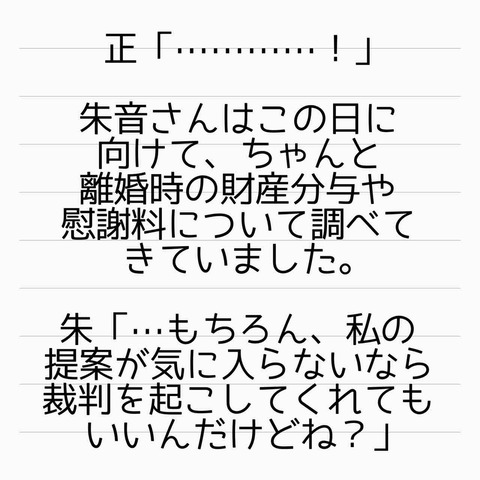 正「…………！」
朱音さんはこの日に
向けて、ちゃんと
離婚時の財産分与や
慰謝料について調べて
きていました。
朱「…もちろん、私の
提案が気に入らないなら
裁判を起こしてくれても
いいんだけどね？」